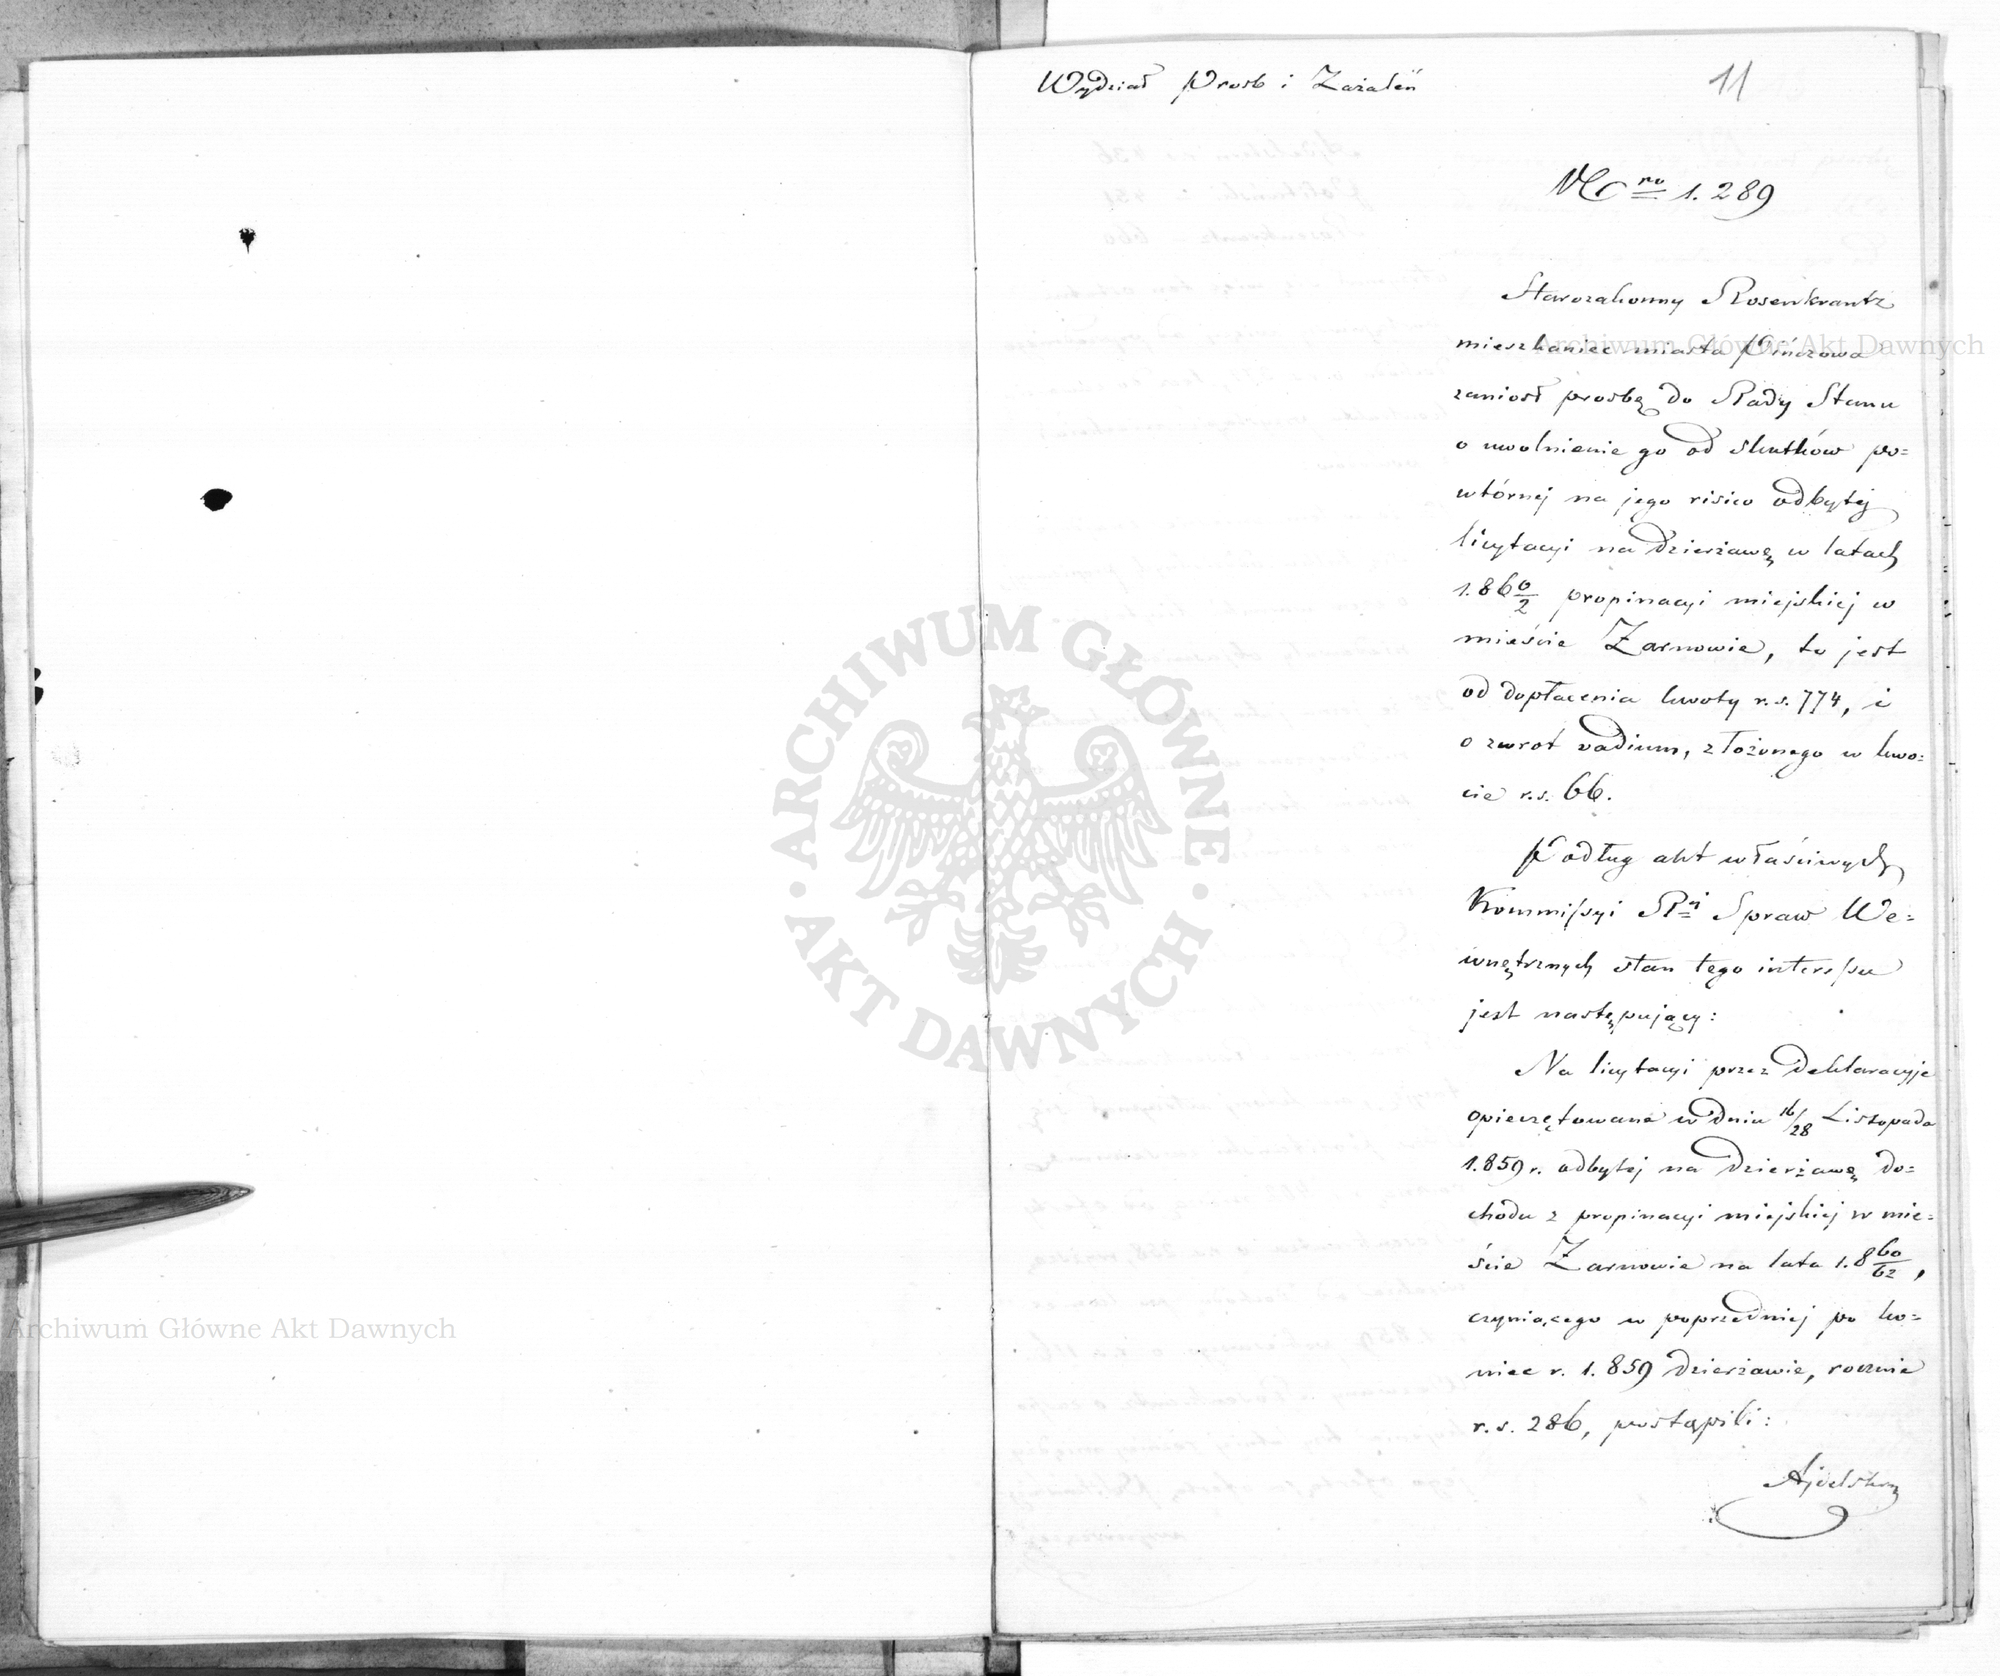 Wydział Prosb i Zażaleń
11
Nro 1.289
Starozakonny Rosenkrantz
mieszkaniec miasta Pińczowa
zaniosł prosbę do Rady Stanu
o uwolnienie go od skutków po=
wtórnej na jego risico odbytej
licytacyi na dzierżawę w latach
1.860/2 propinacyi miejskiej w
mieście Żarnowie, to jest
od dopłacenia kwoty r.s. 774, i
o zwrot vadium, złożonego w kwo=
cie r.s. 66.
Podług akt właściwych
Kommissyi Rj Spraw We=
wnętrznych stan tego interessu
jest następujący:
Na licytacyi przez deklaracyje
opieczętowane w dniu 16/28 Listopada
1.859 r. odbytej na dzierżawę do=
chodu z propinacyi miejskiej w mie=
ście Żarnowie na lata 1.860/62,
czyniącego w poprzedniej po ko=
niec r. 1.859 dzierżawie, rocznie
r.s. 286, postąpili:
Ajdelstein
ARCHIWUM GŁÓWNE
AKT DAWNYCH
Archiwum Główne Akt Dawnych
Archiwum Główne Akt Dawnych